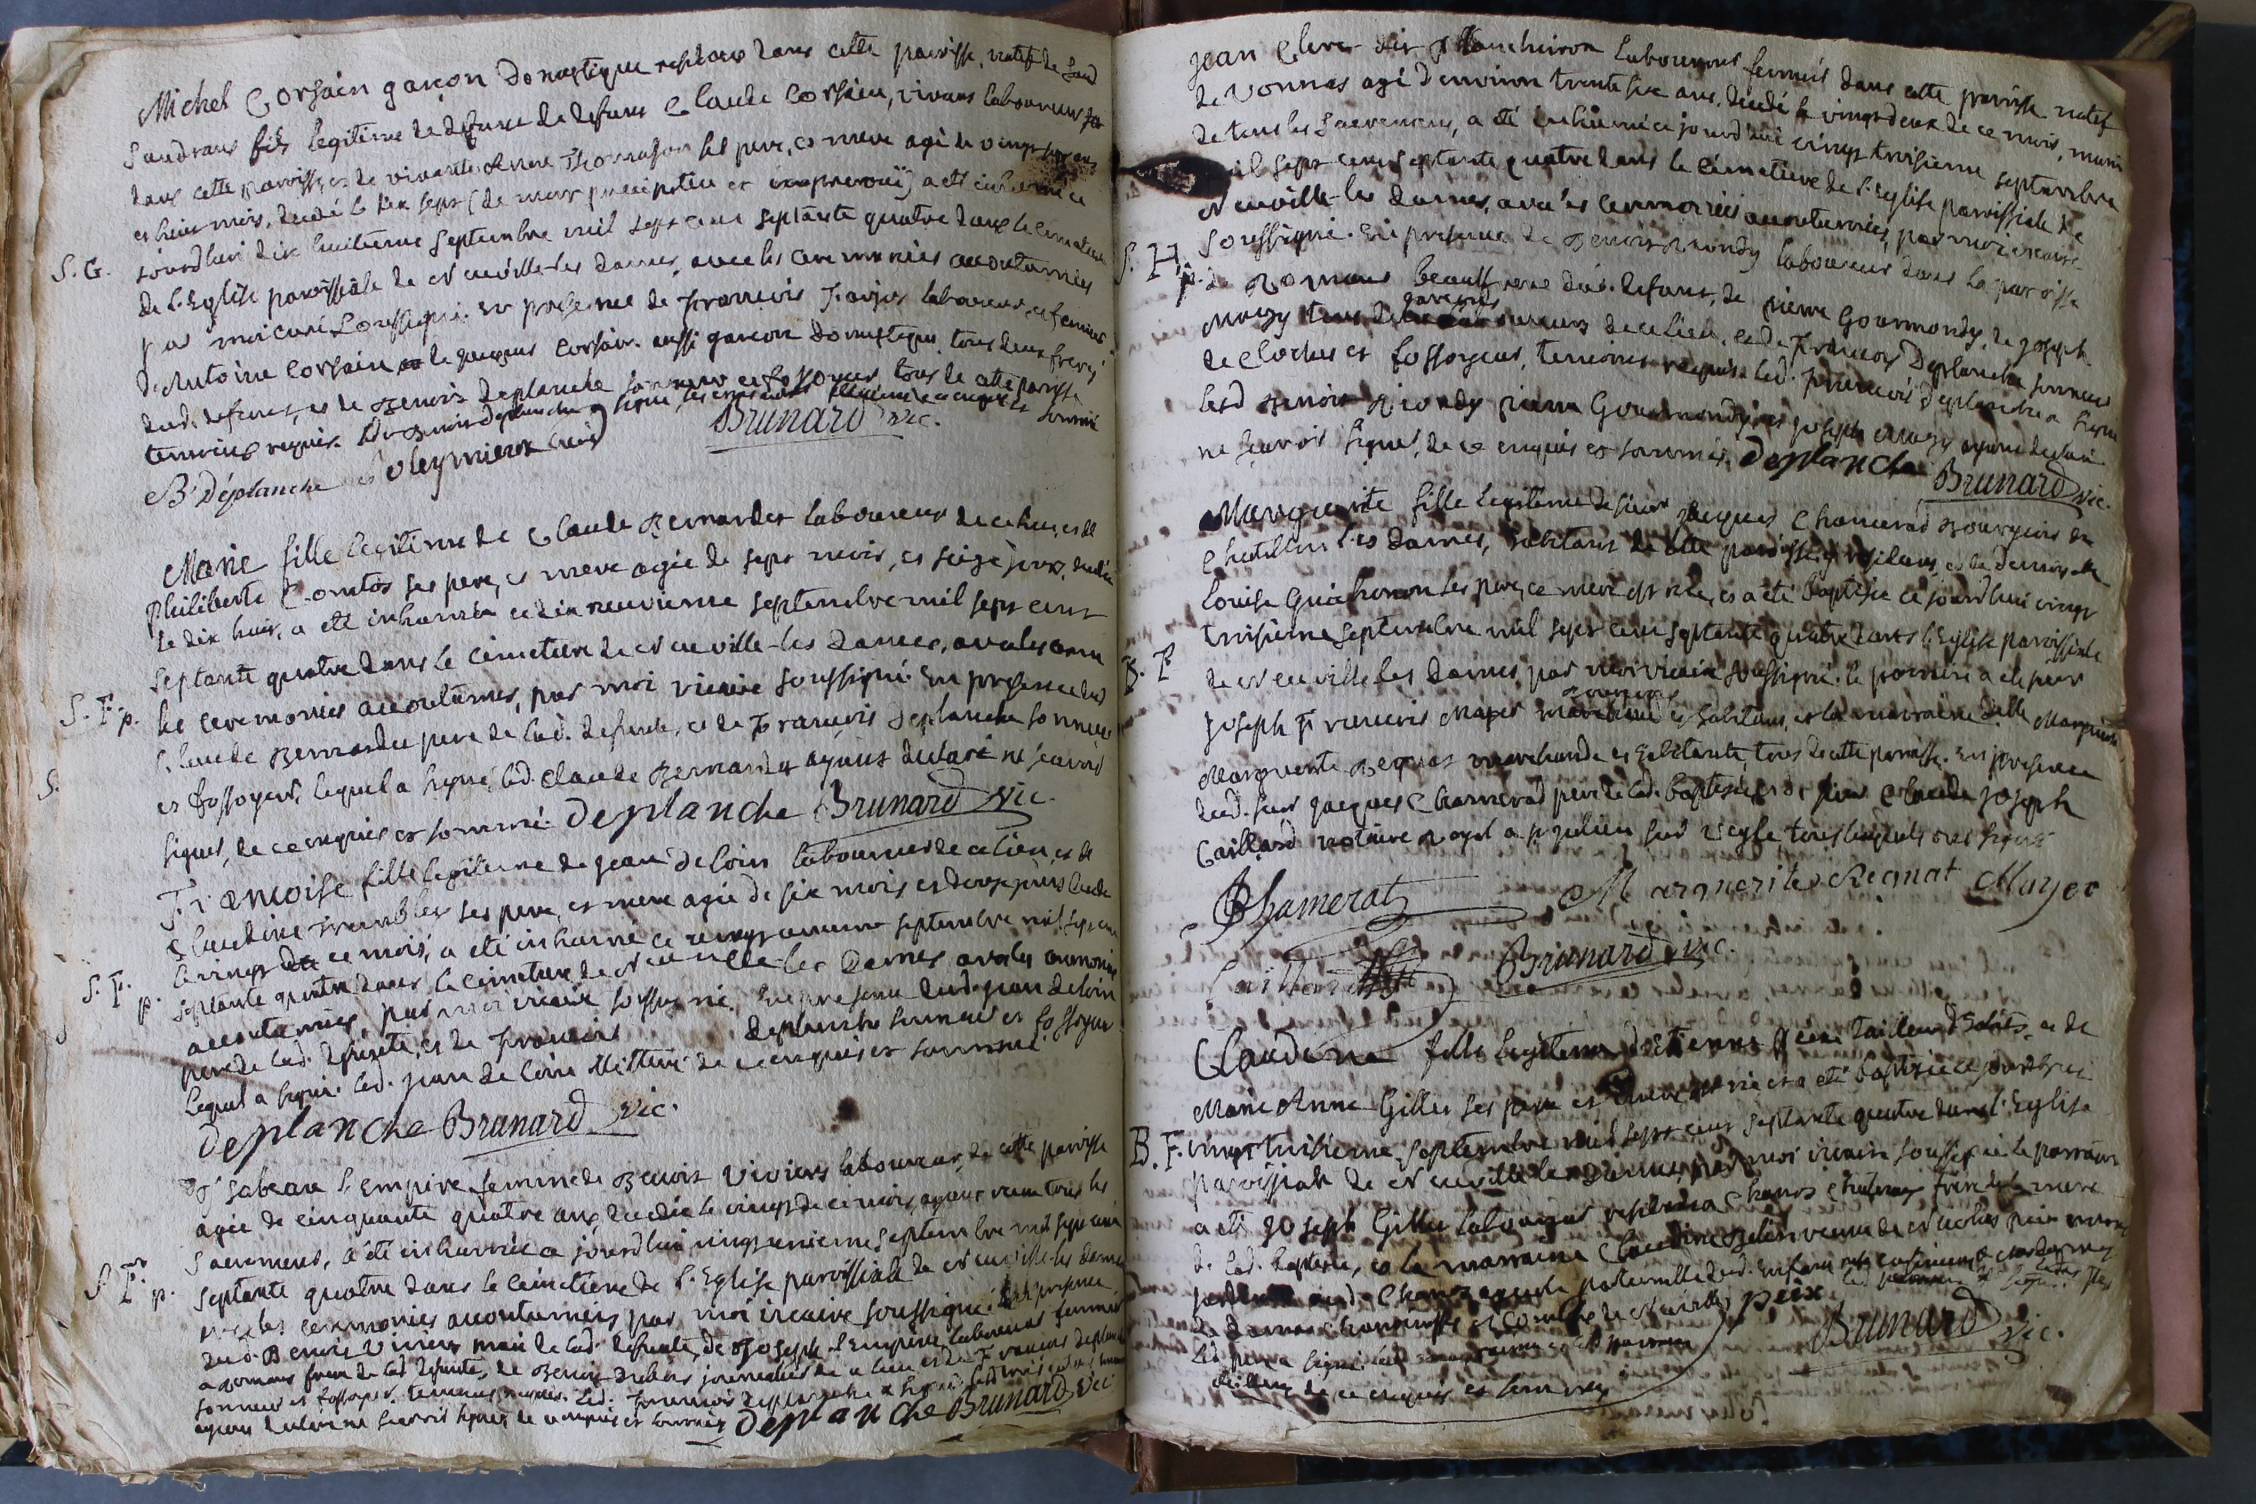 Michel Corsain garçon domestique residant dans cette paroisse, natif de Sand
Sandrans fils legitime de defunt de defunt Claude Corsain, vivant laboureur
dans cette paroisse, et de vivante Anne Thomasson ses pere, et mere agé de vingt ans
et huit mois, decedé le dix sept (de mort precipitée et imprevuë) a eté inhumé ce
jourdhui dix huitieme septembre mil sept cent septante quatre dans le cimetiere
S. G.
de l'Eglise paroissiale de Neuville-les Dames, avec les ceremonies accoutumées
par moi curé soussigné. En presence de François laboureur, et fermier
d'Antoine Corsain et de Jacques Corsain aussi garçon domestique, tous deux freres
dud. defunt, et de Benoit Deplanche sonneur et fossoyeur tous de cette paroisse
temoins requis. Led. Benoit Deplanche a signé, les enquis et sommés
B Déplanche Brunard vic.
Marie fille legitime de Claude Bernardet laboureur de ce lieu, et de
Philiberte Comtos ses pere, et mere agée de sept mois, et seize jours, decedée
le dix huit, a eté inhumée ce dix neuvieme septembre mil sept cent
septante quatre dans le cimetiere de Neuville-les Dames, avec les cere
S. F. p.
les ceremonies accoutumées, par moi vicaire soussigné. En presence dud.
Claude Bernardet pere de lad. defunte, et de François Deplanche sonneur
S.
et fossoyeur, lequel a signé, led. Claude Bernardet ayant declaré ne sçavoir
signer, de ce enquis et sommé. Deplanche Brunard vic.
Françoise fille legitime de Jean Deloin laboureur de ce lieu, et de
Claudine Trembley ses pere, et mere agée de six mois et douze jours, decedée
le vingt de ce mois, a eté inhumée ce vingt unieme septembre mil sept cent
S. F. p.
septante quatre dans le cimetiere de Neuville-les Dames avec les ceremonies
accoutumées, par moi vicaire soussigné. En presence dud. Jean Deloin
pere de lad. defunte, et de François Deplanche sonneur et fossoyeur
lequel a signé. led. Jean de loin illitteré de ce enquis et sommé.
Deplanche Brunard vic.
Isabeau l'Empire femme de Benoit Viviers laboureur, de cette paroisse
agée de cinquante quatre ans, decedée le vingt de ce mois, ayant reçu tous les
Sacremens, a été inhumée ce jourdhui vingt unieme septembre mil sept cent
S. F. p.
septante quatre dans le cimetiere de l'Eglise paroissiale de Neuville-les Dames
avec les ceremonies accoutumées par moi vicaire soussigné. En presence
dud. Benoit Viviers mari de lad. defunte, de Joseph l'Empire laboureur fermier
a Romans frere de lad. defunte, de Benoit journalier de ce lieu et de François Deplanche
sonneur et fossoyeur temoins requis. Led. François Deplanche a signé
ayant declaré ne sçavoir signer de ce enquis et sommés Deplanche Brunard vic.
Jean Clerc dit Plancheron laboureur fermier dans cette paroisse natif
de Vonnas agé d'environ trente six ans, decedé le vingt deux de ce mois, muni
de tous les Sacremens, a été inhumé ce jourd'hui vingt troisieme septembre
mil sept cent septante quatre dans le cimetiere de l'Eglise paroissiale de
Neuville-les Dames, avec les ceremonies accoutumées, par moi vicaire
S. H. p.
soussigné. En presence de Benoit Riondy laboureur dans la paroisse
de Romans beaufrere dud. defunt, de pierre Gourmondy, de Joseph
Mazuy tous garçons laboureurs de ce lieu, et de François Deplanche sonneur
de Cloches et fossoyeur, temoins requis. Led. François Deplanche a signé
lesd Benoit Riondy pierre Gourmondy, et Joseph Mazuy ayant declaré
ne sçavoir signer, de ce enquis et sommés. Deplanche Brunard vic.
Marguerite fille legitime de sieur Jacques Chamerad Bourgeois de
Chatillon les Dames, habitant de cette paroisse y residant, et de demoiselle
Louise Guicheron ses pere, et mere est née, et a eté baptisée ce jourdhui vingt
troisieme septembre mil sept cent septante quatre dans l'Eglise paroissiale
B. F
de Neuville les Dames, par moi vicaire soussigné. le parrain a eté sieur
Joseph François Mayer bourgeois et habitant, et la marraine dlle Marguerite
Marguerite Regnat marchande et habitante, tous de cette paroisse. En presence
dud. sieur Jacques Chamerad pere de lad. baptisée, et de sieur Claude Joseph
Gaillard notaire royal a st julien sur veyle, tous lesquels ont signé
Chamerat Marguerite Regnat Mayer
Gaillard Brunard vic.
Claudine fille legitime d'Etienne tailleur d'habits, et de
Marie Anne Gillet ses pere et mere est née et a eté baptisée ce jourdhui
B. F.
vingt troisieme septembre mil sept cent septante quatre dans l'Eglise
paroissiale de Neuville les Dames, par moi vicaire soussigné le parrain
a eté Joseph Gillet laboureur resident a Chanoz Chatenay frere de la mere
de lad. baptisée, et la marraine Claudine veuve de Nicolas
Brunard vic.
de ce enquis et sommés